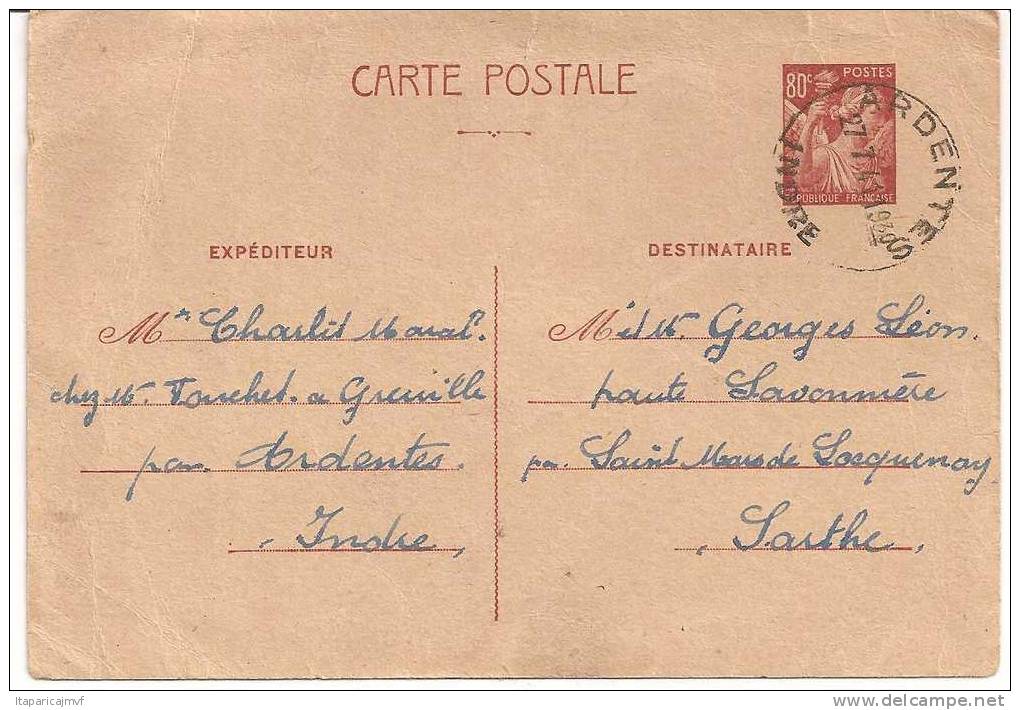 CARTE POSTALE
80c POSTES
RÉPUBLIQUE FRANÇAISE
ARDENTES
INDRE
EXPÉDITEUR
Mr Charlid
chez Mr Touchet. a Greuille
par Ardentes.
Indre,
DESTINATAIRE
M et Mme Georges Léon.
haute Savonnière
par Saint Mars de Locquenay
Sarthe,
ltaparicajmvf
delcampe.net